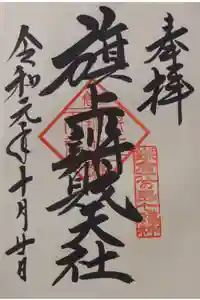 奉拝
旗上辨財天社
令和元年十月廿日